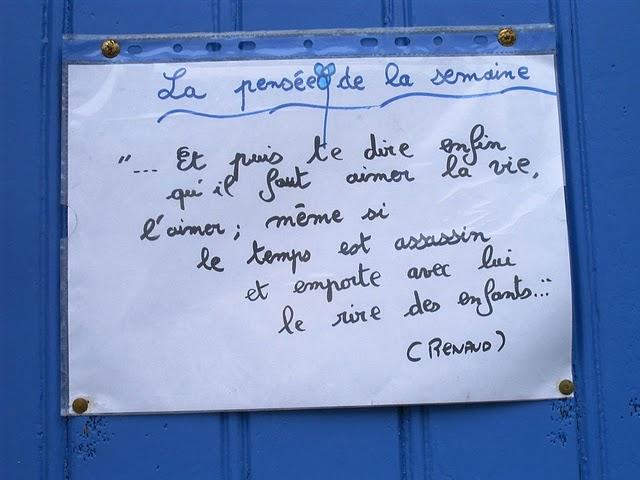 La pensée de la semaine
"... Et puis te dire enfin
qu'il faut aimer la vie,
l'aimer, même si
le temps est assassin
et emporte avec lui
le rire des enfants..."
(RENAUD)